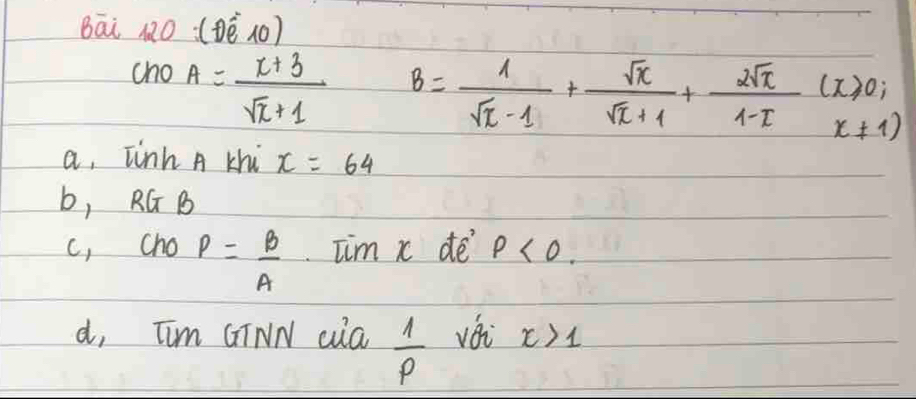 Bài 120 : (Đề 10)
Cho A = \frac{x+3}{\sqrt{x}+1} B = \frac{1}{\sqrt{x}-1} + \frac{\sqrt{x}}{\sqrt{x}+1} + \frac{2\sqrt{x}}{1-x} (x ≥ 0;
x ≠ 1)
a, Tính A khi x = 64
b, RG B
c, Cho P = \frac{B}{A} . Tìm x để P < 0.
d, Tìm GTNN của \frac{1}{P} với x > 1